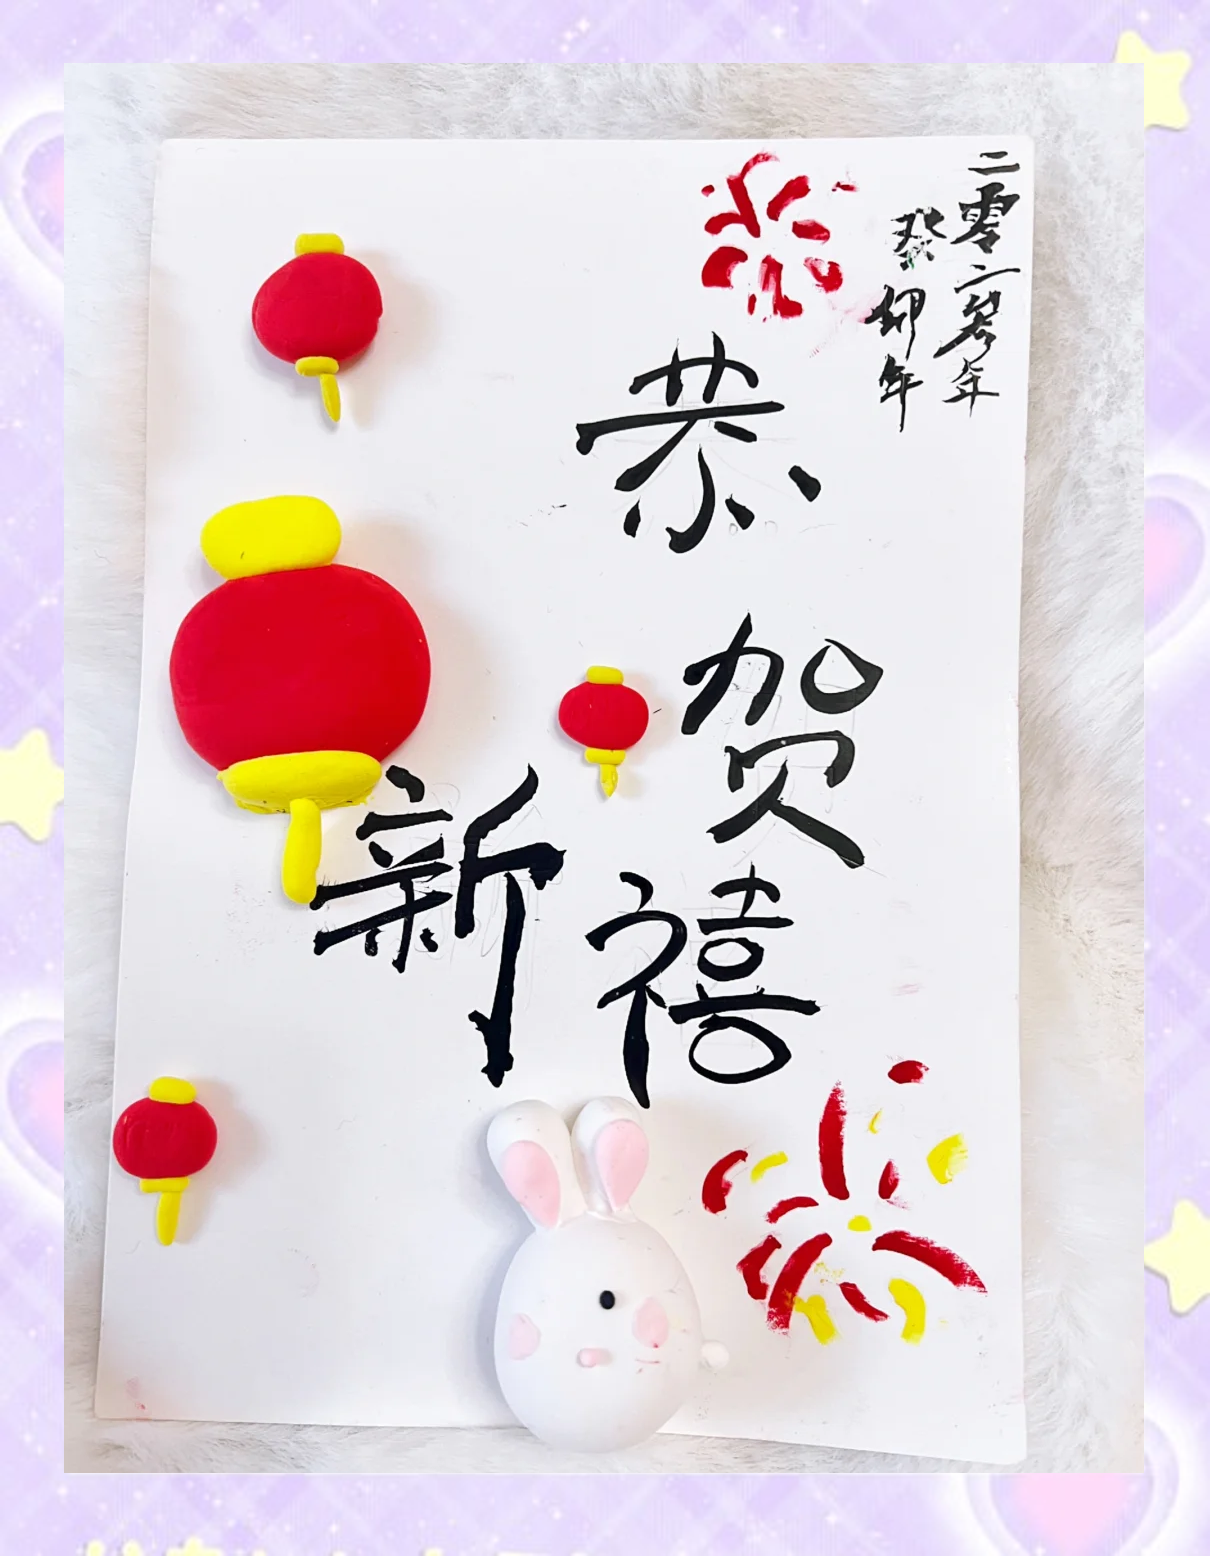 二零二叁年
癸卯年
恭贺
新禧